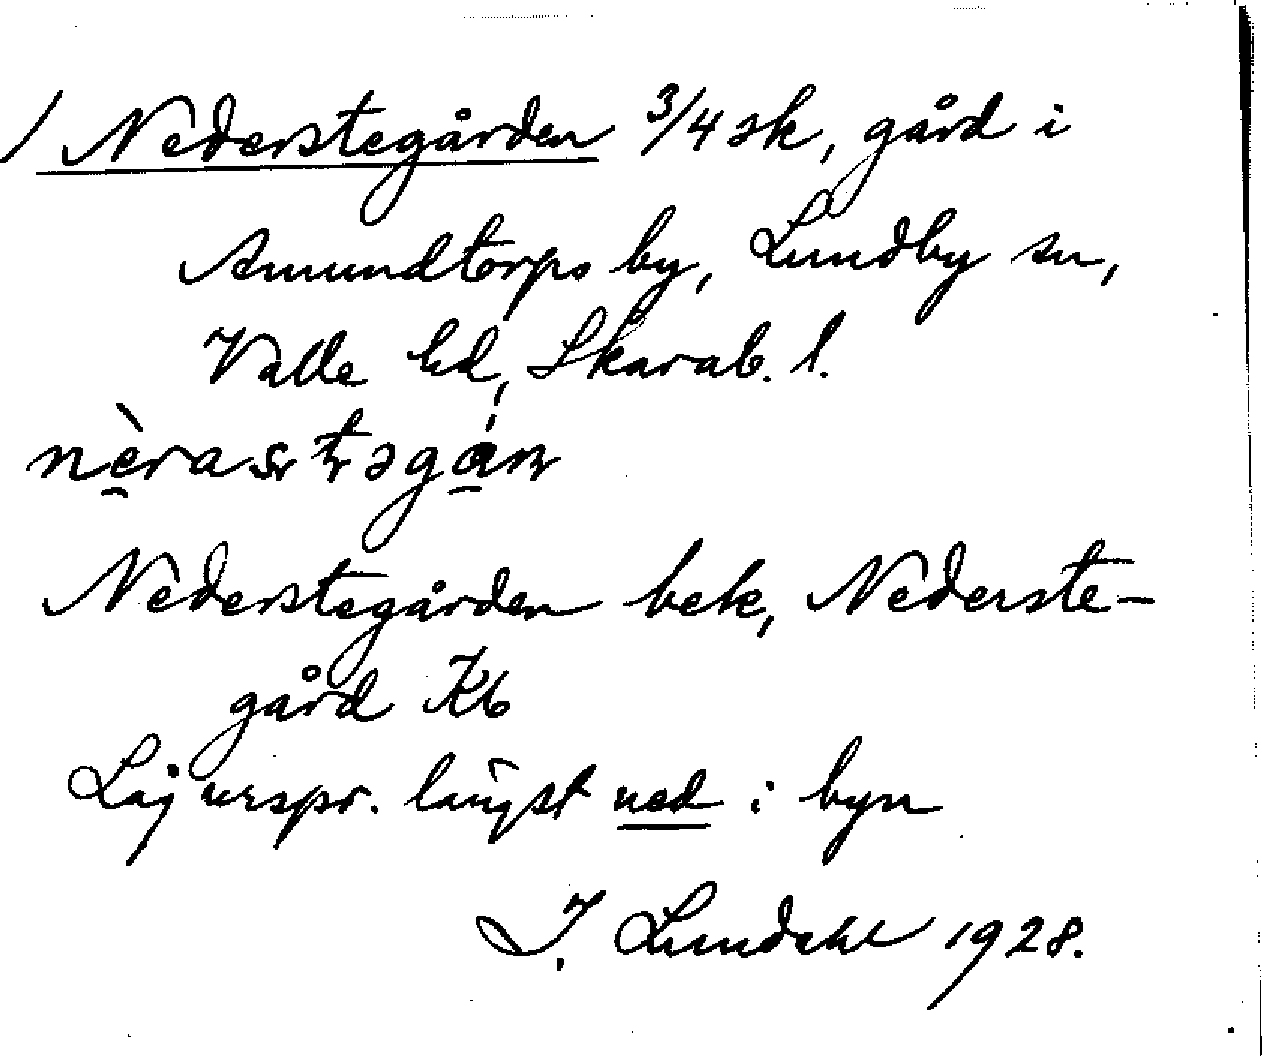 / Nederstegården 3/4 sk, gård i
Amundtorps by, Lundby sn,
Valle hd, Skarab. l.
nè̱rastəgá̱n
Nederstegården bek, Nederste-
gård Kb
Låg urspr. längst ned i byn
I. Lundahl 1928.